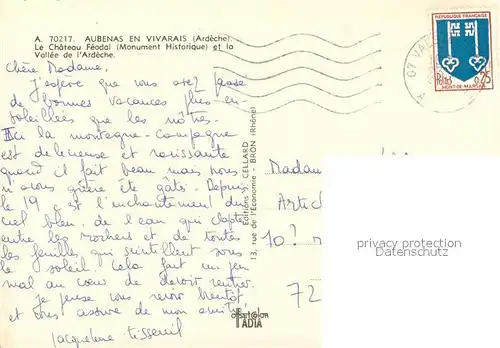 A. 70217. AUBENAS EN VIVARAIS (Ardèche).
Le Château Féodal (Monument Historique) et la
Vallée de l'Ardèche.
Chère Madame,
J'espère que vous avez passé
de bonnes vacances plus en-
soleillées que les nôtres.
Ici la montagne-campagne
est délicieuse et ravissante
quand il fait beau mais nous
n'avons guère été gâtés. Depuis
le 19 c'est l'enchantement du
ciel bleu, de l'eau qui clapote
entre les rochers et de toutes
les feuilles qui scintillent sous
le soleil. Cela fait un peu
mal au cœur de devoir rentrer.
Je pense vous revoir bientôt
et vous assure de mon amitié
Jacqueline Tisseuil
Editions J. CELLARD
13, rue de l'Economie - BRON (Rhône)
offset color
IADIA
REPUBLIQUE FRANÇAISE
POSTES 0,25
MONT-DE-MARSAN
07
Madam
Artic
10?
72
privacy protection
Datenschutz